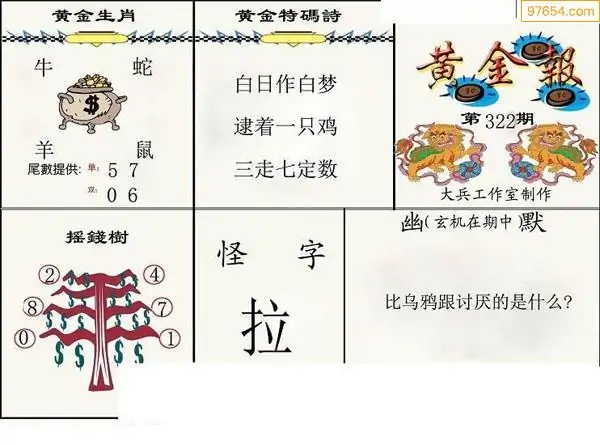 97654.com
黄金生肖
牛 蛇
$
羊 鼠
尾數提供: 单: 5 7
双: 0 6
黄金特碼詩
白日作白梦
逮着一只鸡
三走七定数
黄金報
第322期
大兵工作室制作
摇錢樹
2 4
8 7
0 1
$ $ $ $ $ $ $ $
怪 字
拉
幽(玄机在期中)默
比乌鸦跟讨厌的是什么?